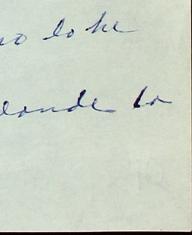 no lo he
donde lo